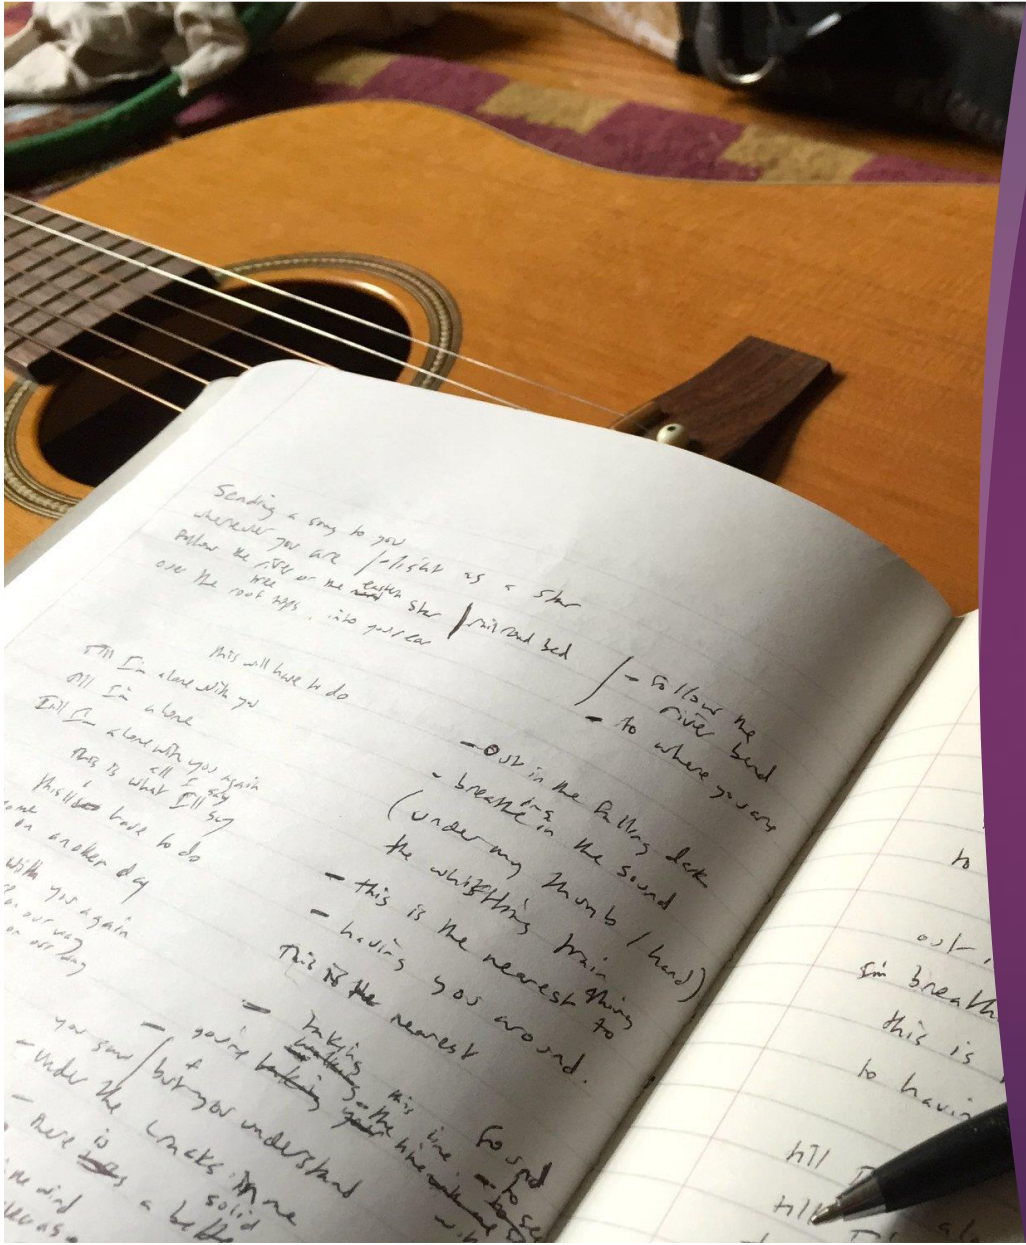 Sending a song to you
wherever you are / light as a star
Follow the river or the eastern star / railroad bed
tree
over the roof tops into your ear
this will have to do
till I'm alone with you
till I'm alone
till I'm alone with you again
all I say
This is what I'll say
this'll have to do
come on another day
with you again
on our way
on our day
- Follow the
river bend
- to where you are
- out in the falling dark
- breathing in the sound
(under my thumb / hand)
the whistling train
- this is the nearest thing to
- having you around.
This is the nearest
- taking this line
- you're
you saw / but you understand
- under the cracks in me
- there is a solid
a better
the wind
Found
to see
to
out,
I'm breath
this is
to havin
till I
till
alo